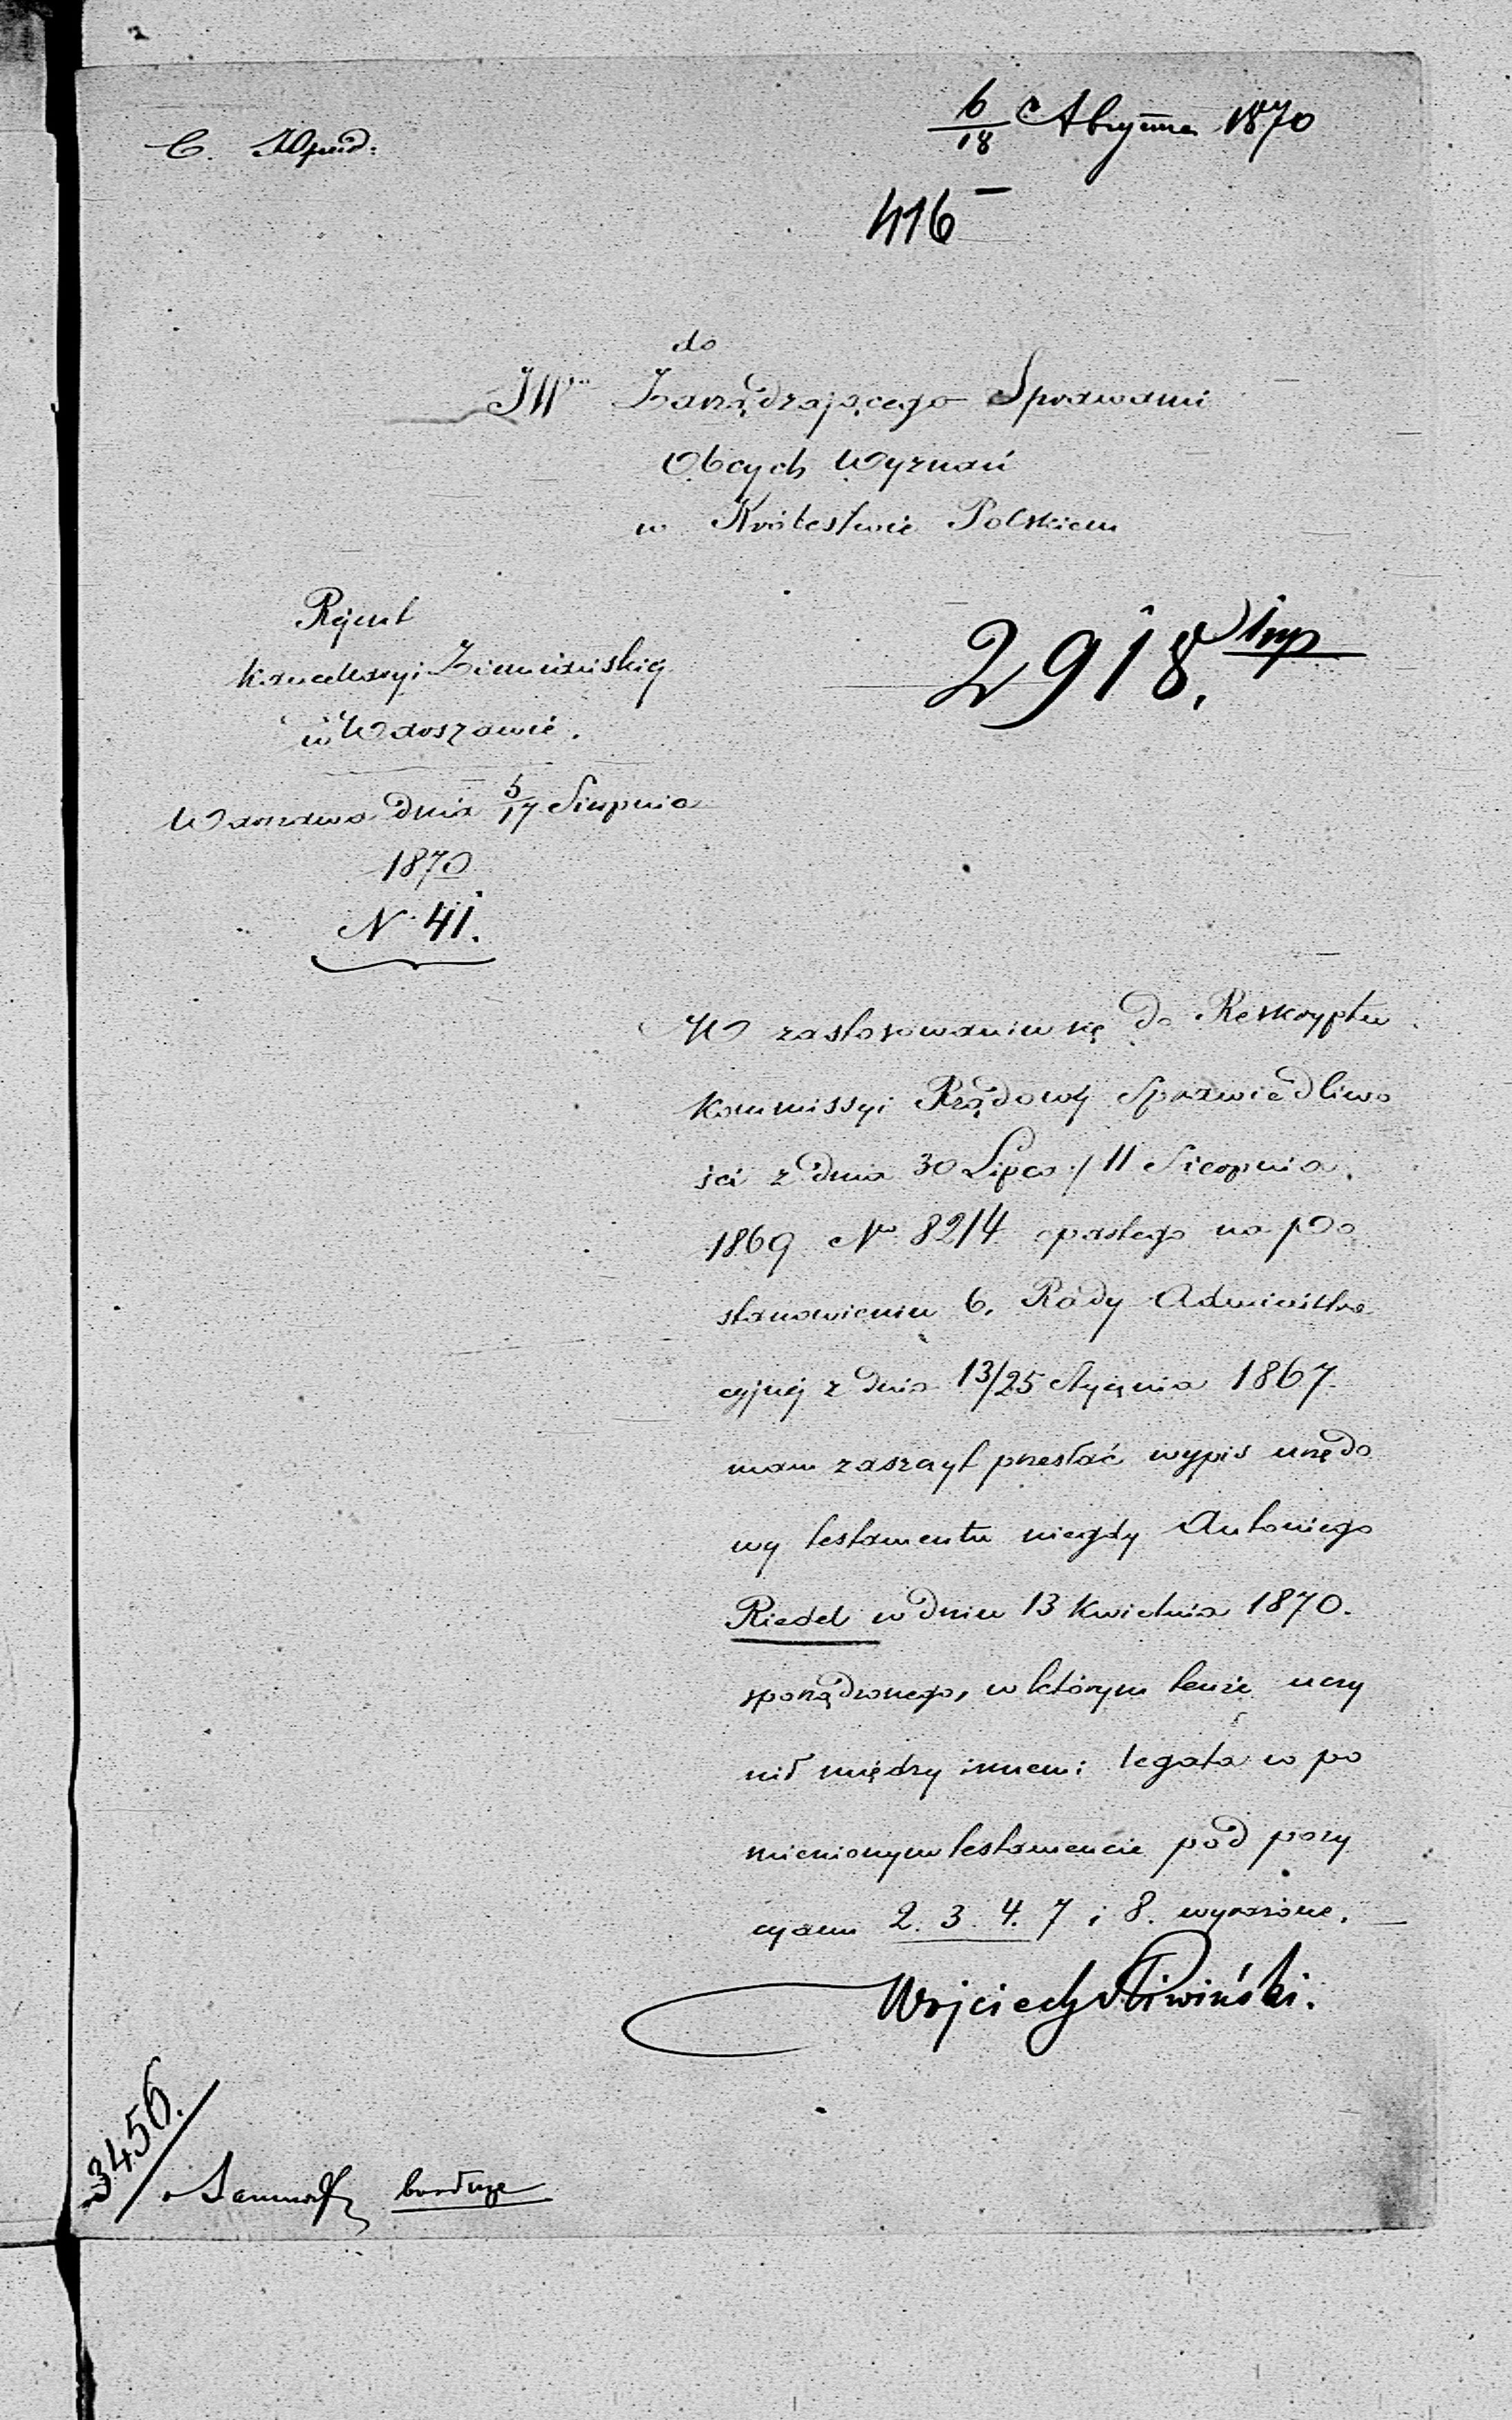 6/18 Августа 1870
416
do
JW Zarządzającego Sprawami
Obcych Wyznań
w Królestwie Polskiem
Rejent
Kancellaryi Ziemiańskiej
w Warszawie.
Warszawa dnia 5/17 Sierpnia
1870
N 41.
2918.
W zastosowaniu się do Reskryptu
Kommissyi Rządowej Sprawiedliwo
ści z dnia 30 Lipca / 11 Sierpnia
1869 No 8214 opartego na po
stanowieniu b. Rady Administra
cyjnej z dnia 13/25 Stycznia 1867
mam zaszczyt przesłać wypis urzędo
wy testamentu niegdy Antoniego
Riedel w dniu 13 Kwietnia 1870.
sporządzonego, w którym tenże uczy
nił między innemi legata w po
mienionym testamencie pod pozy
cyami 2. 3. 4. 7 i 8. wyrażone.
Wojciech Śliwiński.
3456.